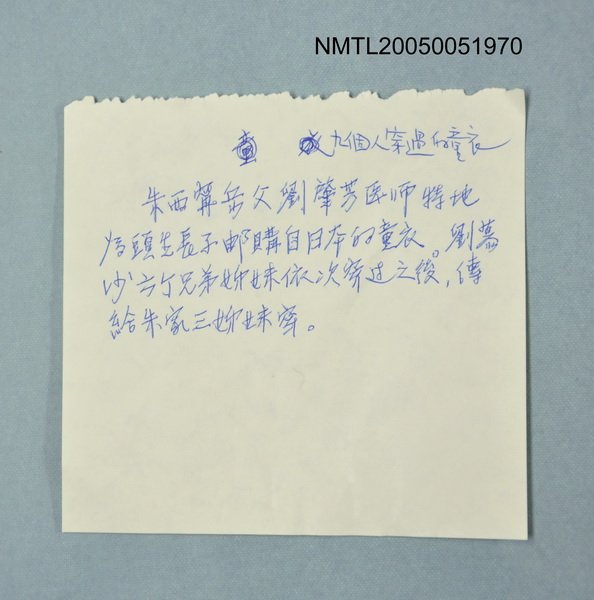 NMTL20050051970
九個人穿過的童衣
朱西甯岳父劉肇芳医师特地
為頭生長子邮購自日本的童衣。劉慕
沙六个兄弟姊妹依次穿过之後,傳
給朱家三姊妹穿。